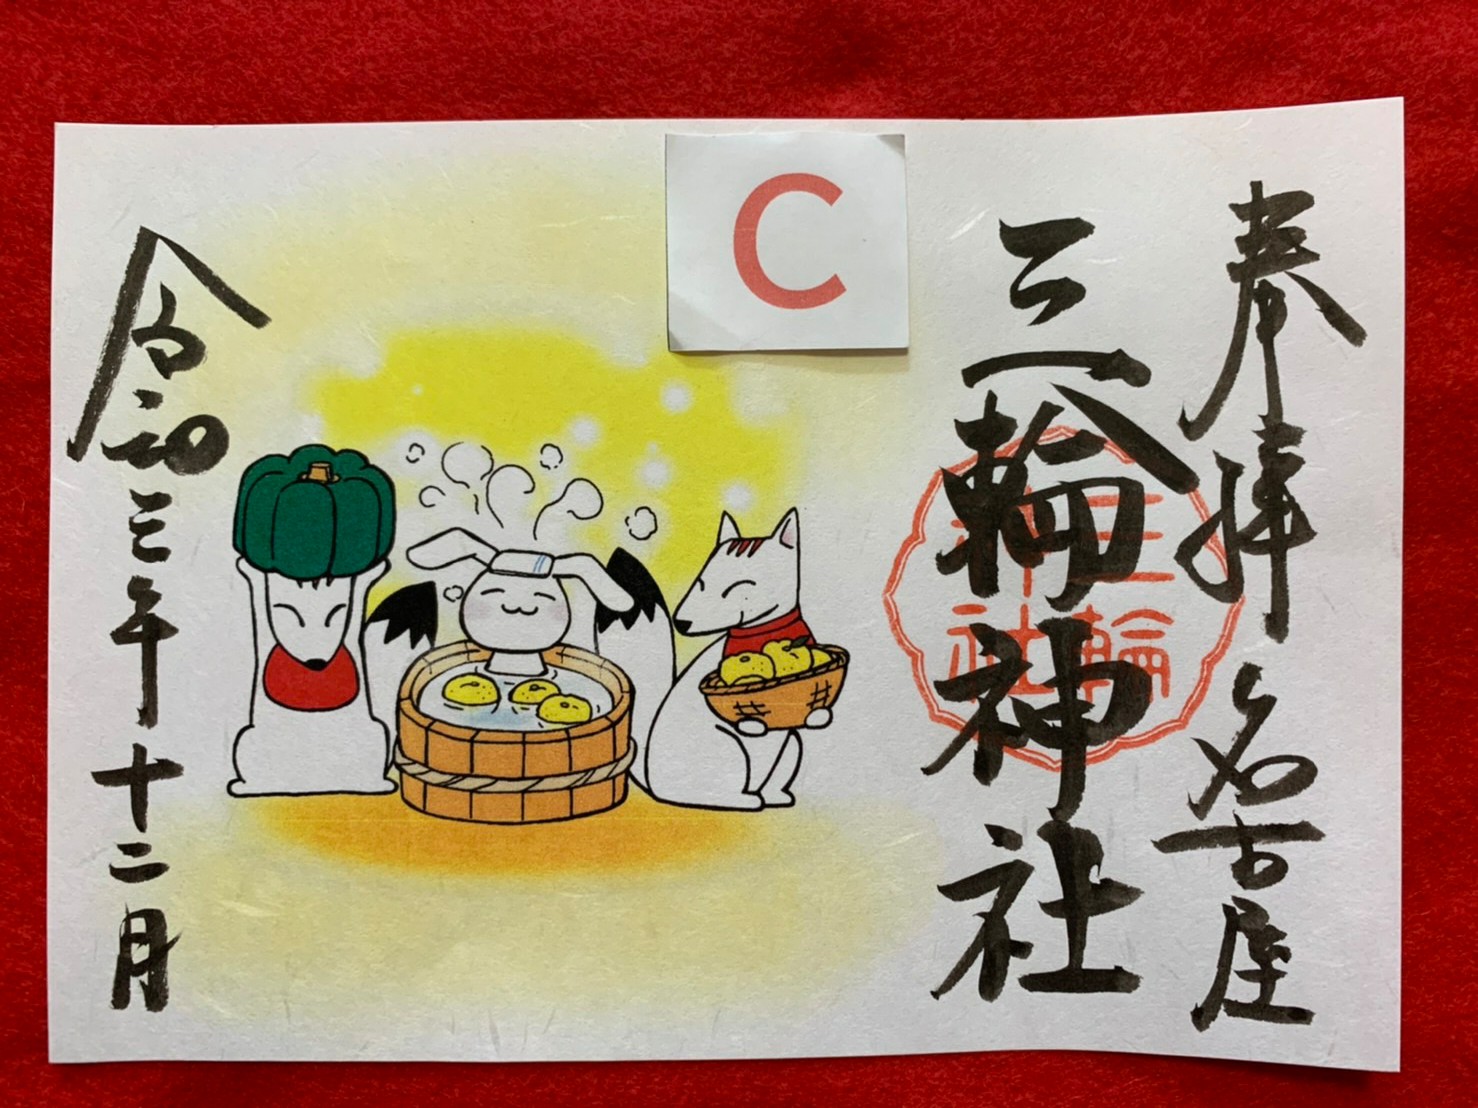 奉拝 名古屋
三輪神社
三輪
神社
C
令和三年十二月